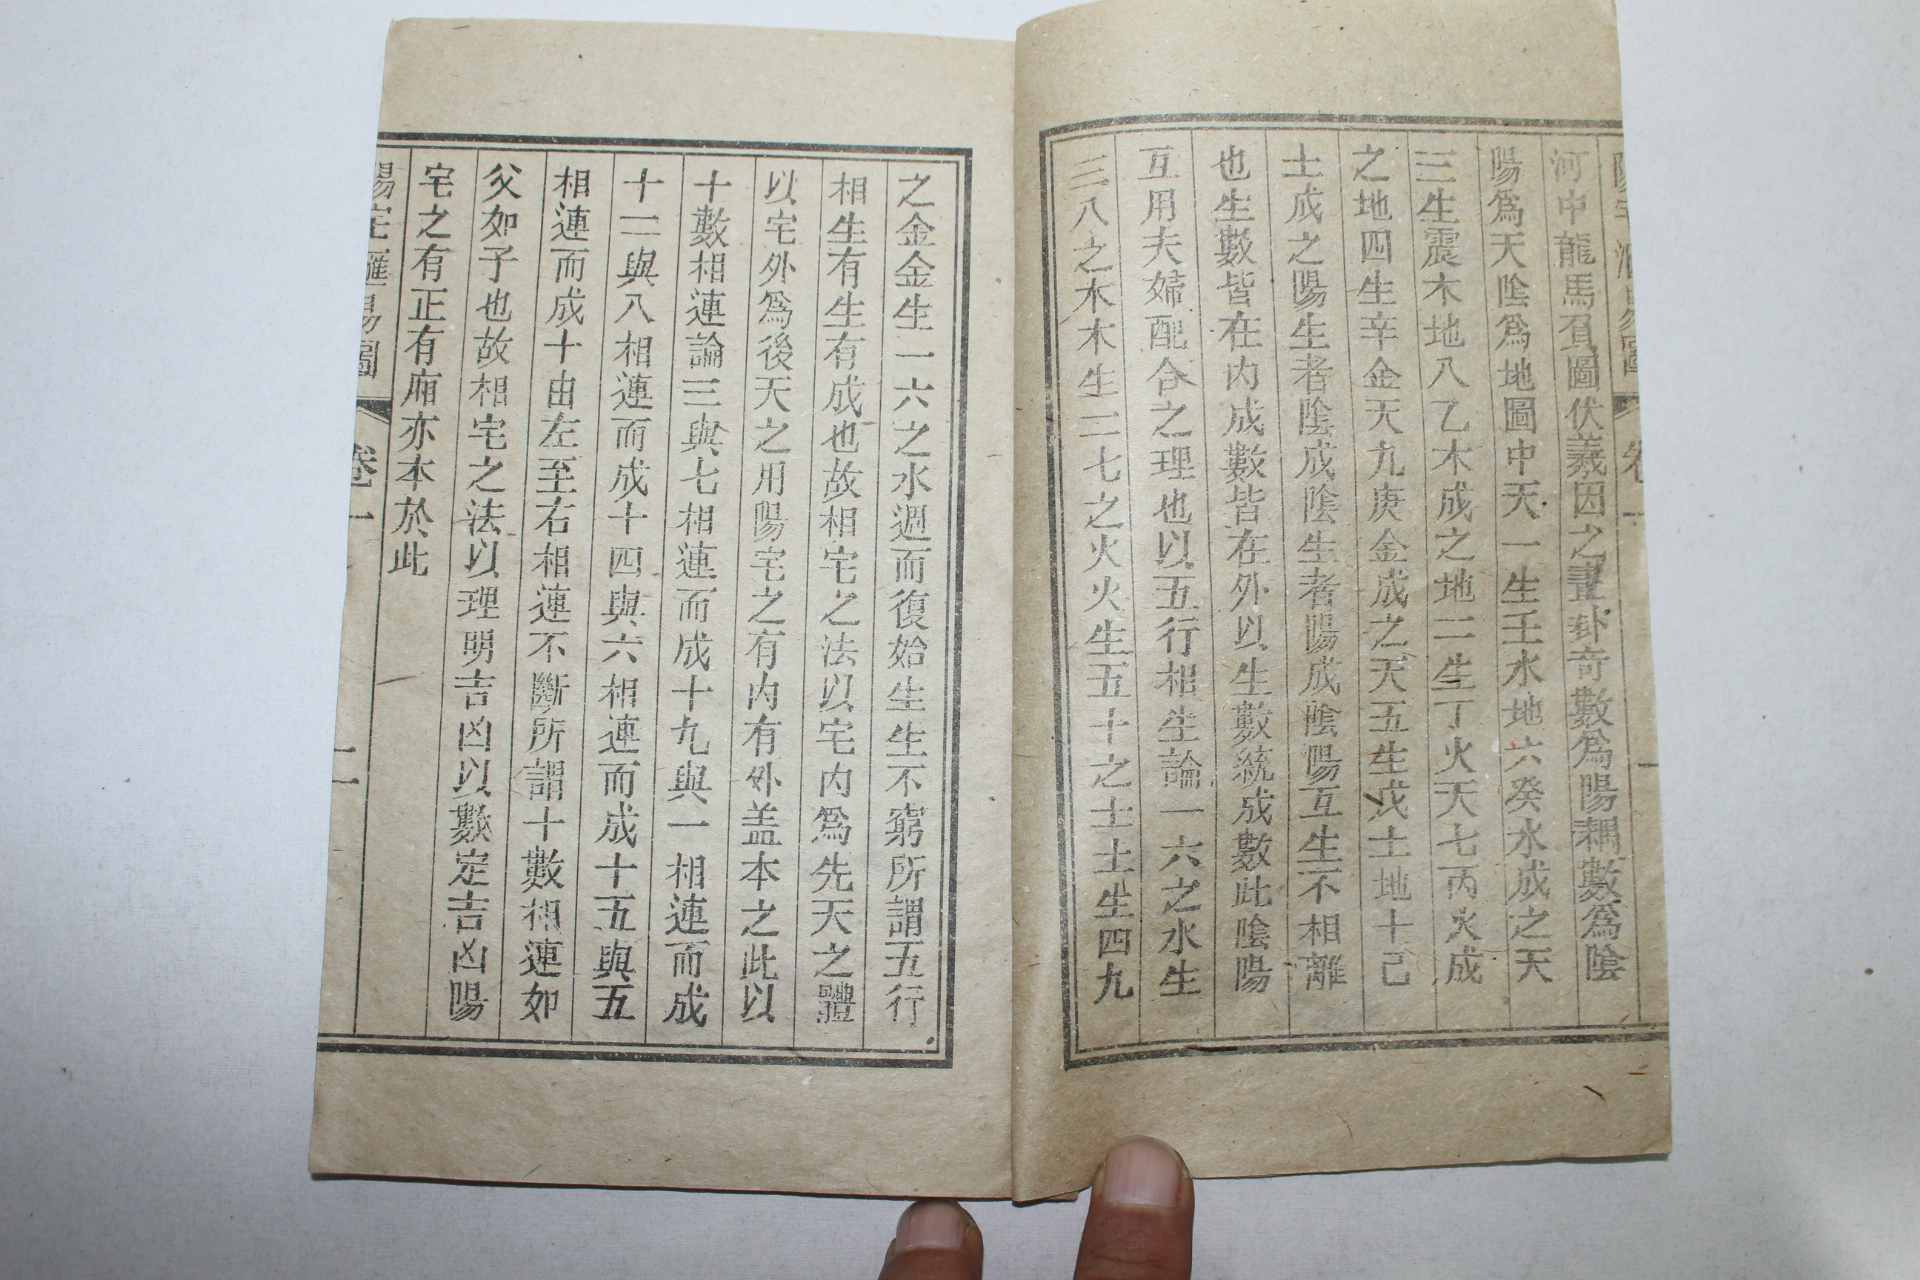 河中龍馬負圖伏羲因之畫卦奇數爲陽耦數爲陰
陽爲天陰爲地圖中天一生壬水地六癸水成之天
三生震木地八乙木成之地二生丁火天七丙火成
之地四生辛金天九庚金成之天五生戊土地十己
土成之陽生者陰成陰生者陽成陰陽互生不相離
也生數皆在内成數皆在外以生數統成數此陰陽
互用夫婦配合之理也以五行相生論一六之水生
三八之木木生二七之火火生五十之土土生四九
之金金生一六之水週而復始生生不窮所謂五行
相生有生有成也故相宅之法以宅内爲先天之體
以宅外爲後天之用陽宅之有内有外盖本之此以
十數相連論三與七相連而成十九與一相連而成
十二與八相連而成十四與六相連而成十五與五
相連而成十由左至右相連不斷所謂十數相連如
父如子也故相宅之法以理明吉凶以數定吉凶陽
宅之有正有廂亦本於此
陽宅匯易圖
卷一
二